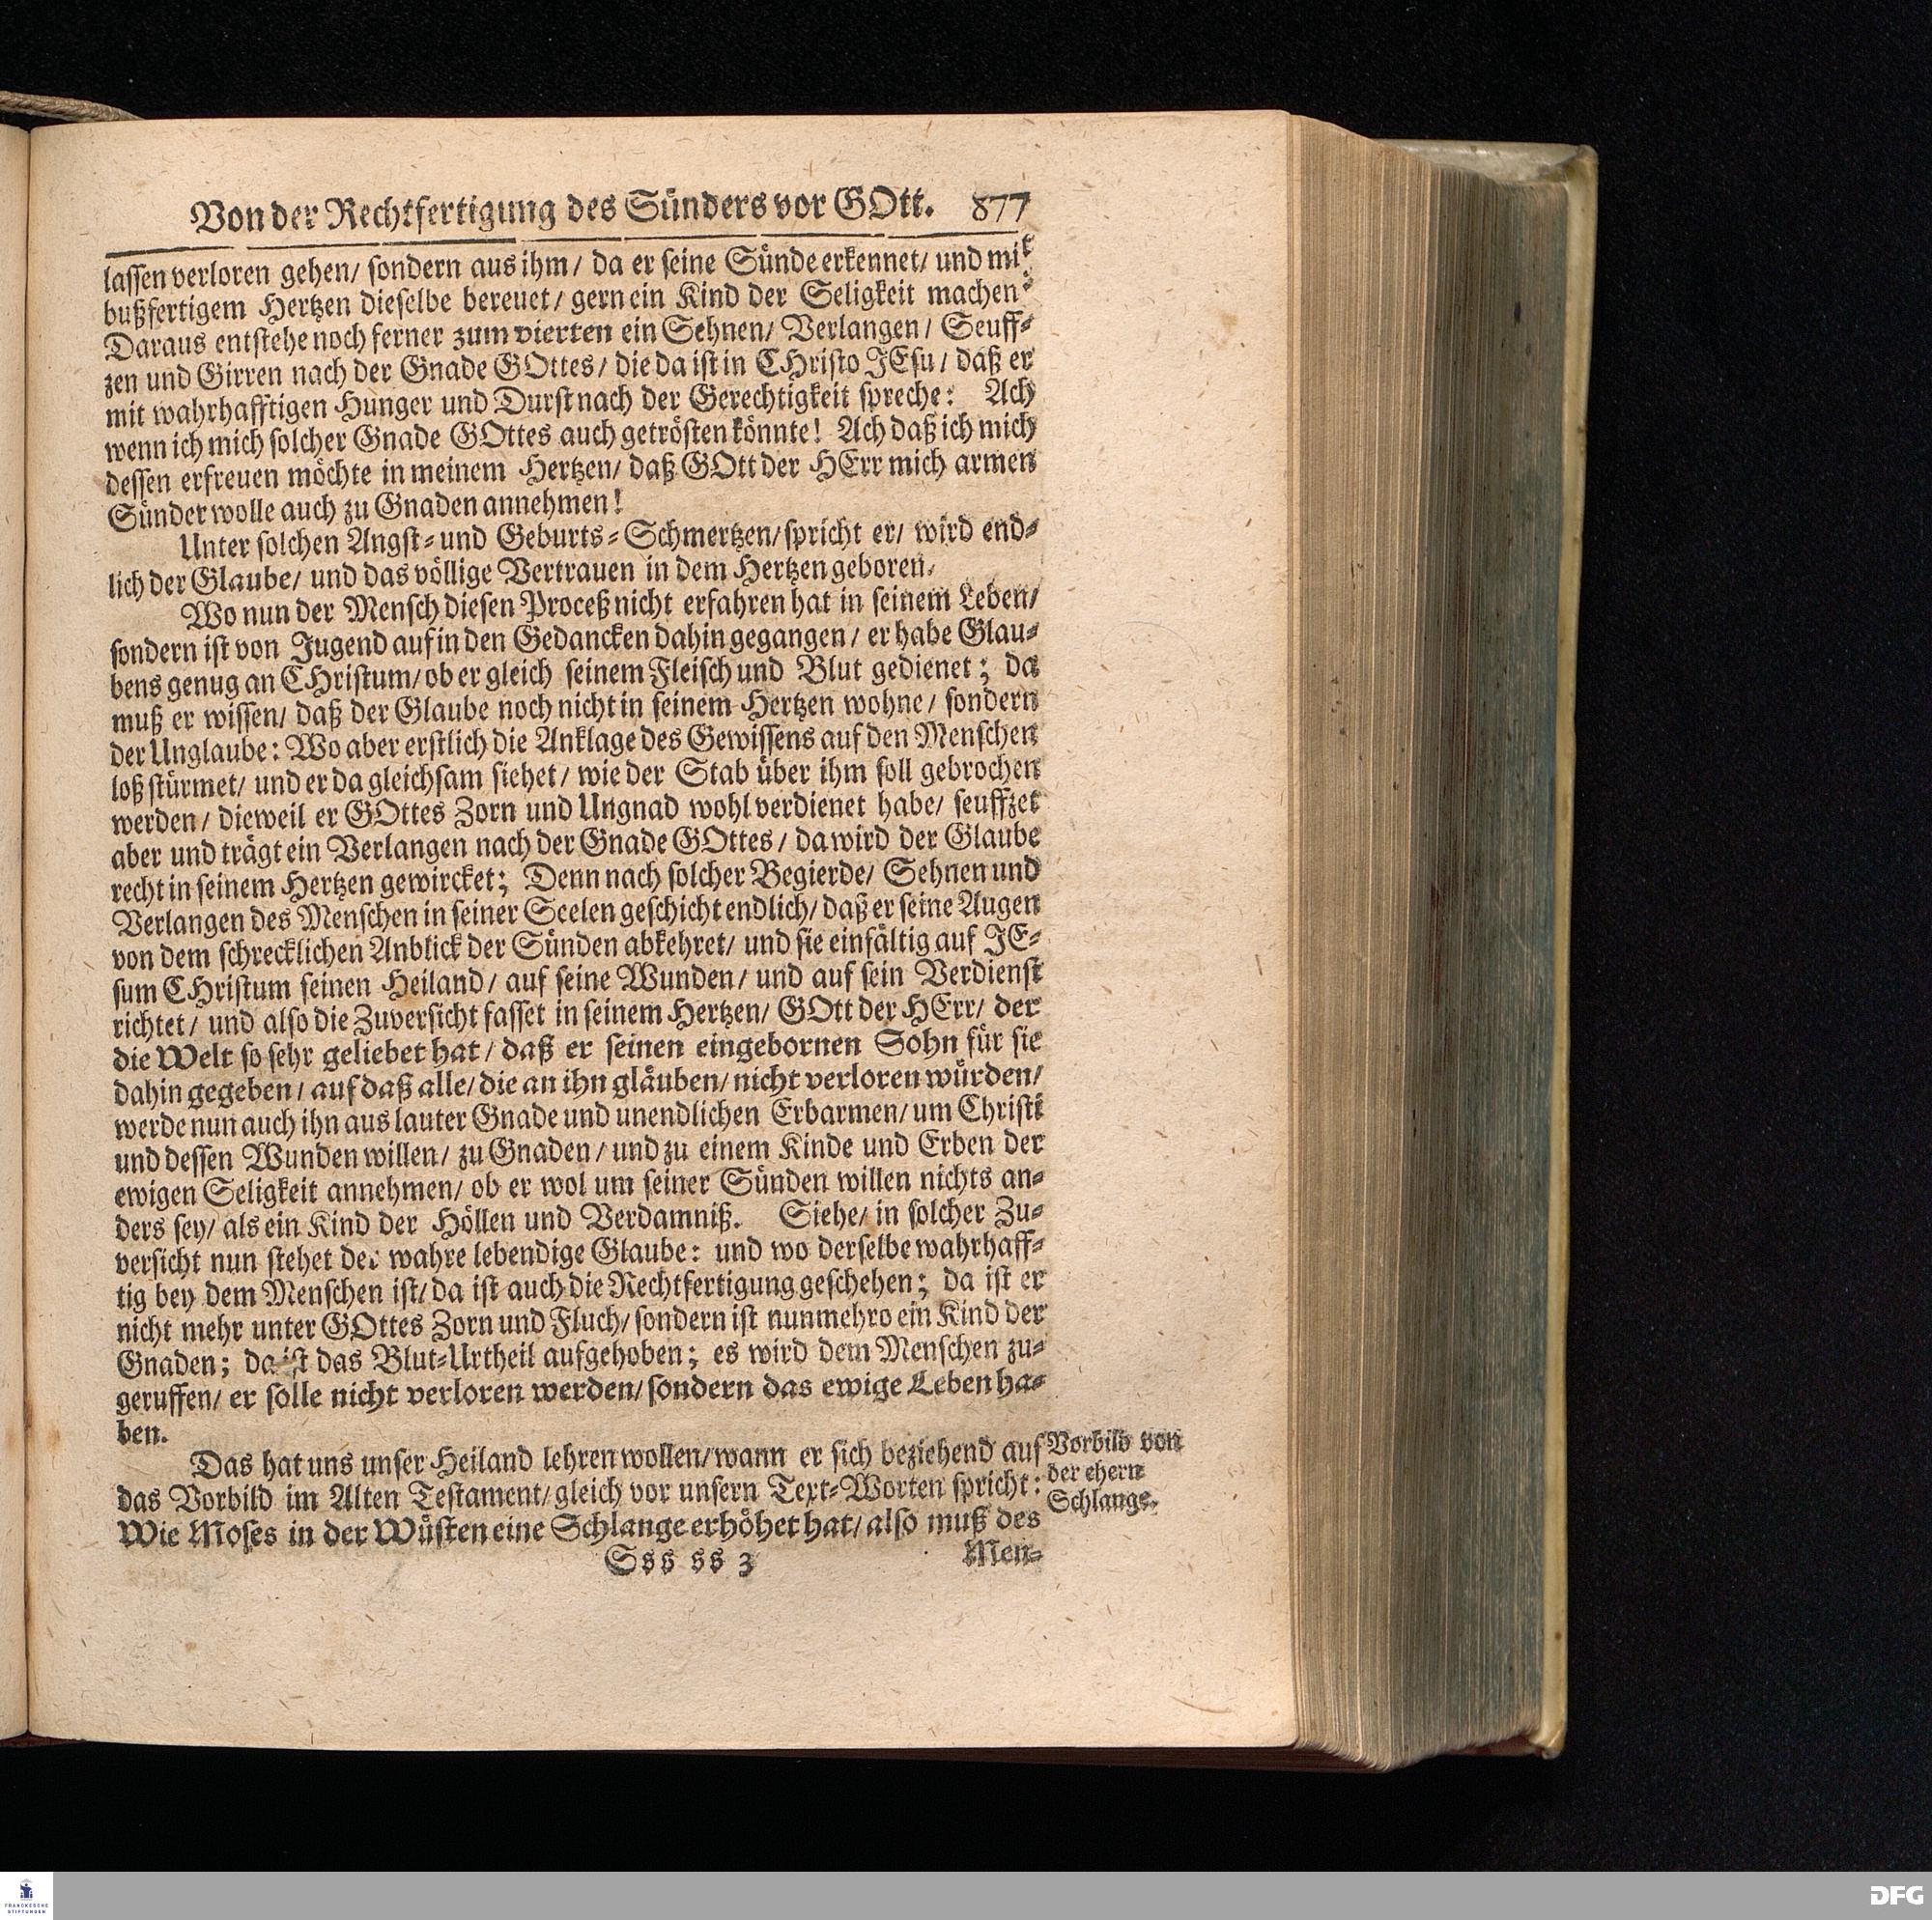 Von der Rechtfertigung des Sünders vor GOtt. 877
lassen verloren gehen/ sondern aus ihm/ da er seine Sünde erkennet/ und mit
bußfertigem Hertzen dieselbe bereuet/ gern ein Kind der Seligkeit machen:
Daraus entstehe noch ferner zum vierten ein Sehnen/ Verlangen/ Seuff-
zen und Girren nach der Gnade GOttes/ die da ist in CHristo JEsu/ daß er
mit wahrhafftigen Hunger und Durst nach der Gerechtigkeit spreche: Ach
wenn ich mich solcher Gnade GOttes auch getrösten könnte! Ach daß ich mich
dessen erfreuen möchte in meinem Hertzen/ daß GOtt der HErr mich armen
Sünder wolle auch zu Gnaden annehmen!
Unter solchen Angst- und Geburts-Schmertzen/ spricht er/ wird end-
lich der Glaube/ und das völlige Vertrauen in dem Hertzen geboren.
Wo nun der Mensch diesen Proceß nicht erfahren hat in seinem Leben/
sondern ist von Jugend auf in den Gedancken dahin gegangen/ er habe Glau-
bens genug an CHristum/ ob er gleich seinem Fleisch und Blut gedienet; da
muß er wissen/ daß der Glaube noch nicht in seinem Hertzen wohne/ sondern
der Unglaube: Wo aber erstlich die Anklage des Gewissens auf den Menschen
loß stürmet/ und er da gleichsam siehet/ wie der Stab über ihm soll gebrochen
werden/ dieweil er GOttes Zorn und Ungnad wohl verdienet habe/ seuffzet
aber und trägt ein Verlangen nach der Gnade GOttes/ da wird der Glaube
recht in seinem Hertzen gewircket; Denn nach solcher Begierde/ Sehnen und
Verlangen des Menschen in seiner Seelen geschicht endlich/ daß er seine Augen
von dem schrecklichen Anblick der Sünden abkehret/ und sie einfältig auf JE-
sum CHristum seinen Heiland/ auf seine Wunden/ und auf sein Verdienst
richtet/ und also die Zuversicht fasset in seinem Hertzen/ GOtt der HErr/ der
die Welt so sehr geliebet hat/ daß er seinen eingebornen Sohn für sie
dahin gegeben/ auf daß alle/ die an ihn gläuben/ nicht verloren würden/
werde nun auch ihn aus lauter Gnade und unendlichen Erbarmen/ um Christi
und dessen Wunden willen/ zu Gnaden/ und zu einem Kinde und Erben der
ewigen Seligkeit annehmen/ ob er wol um seiner Sünden willen nichts an-
ders sey/ als ein Kind der Höllen und Verdamniß. Siehe/ in solcher Zu-
versicht nun stehet der wahre lebendige Glaube: und wo derselbe wahrhaff-
tig bey dem Menschen ist/ da ist auch die Rechtfertigung geschehen; da ist er
nicht mehr unter GOttes Zorn und Fluch/ sondern ist nunmehro ein Kind der
Gnaden; da ist das Blut-Urtheil aufgehoben; es wird dem Menschen zu-
geruffen/ er solle nicht verloren werden/ sondern das ewige Leben ha-
ben.
Das hat uns unser Heiland lehren wollen/ wann er sich beziehend auf
das Vorbild im Alten Testament/ gleich vor unsern Text-Worten spricht:
Wie Moses in der Wüsten eine Schlange erhöhet hat/ also muß des
Vorbild von
der ehern
Schlange.
Sss ss 3 Men-
FRANCKESCHE
STIFTUNGEN
DFG